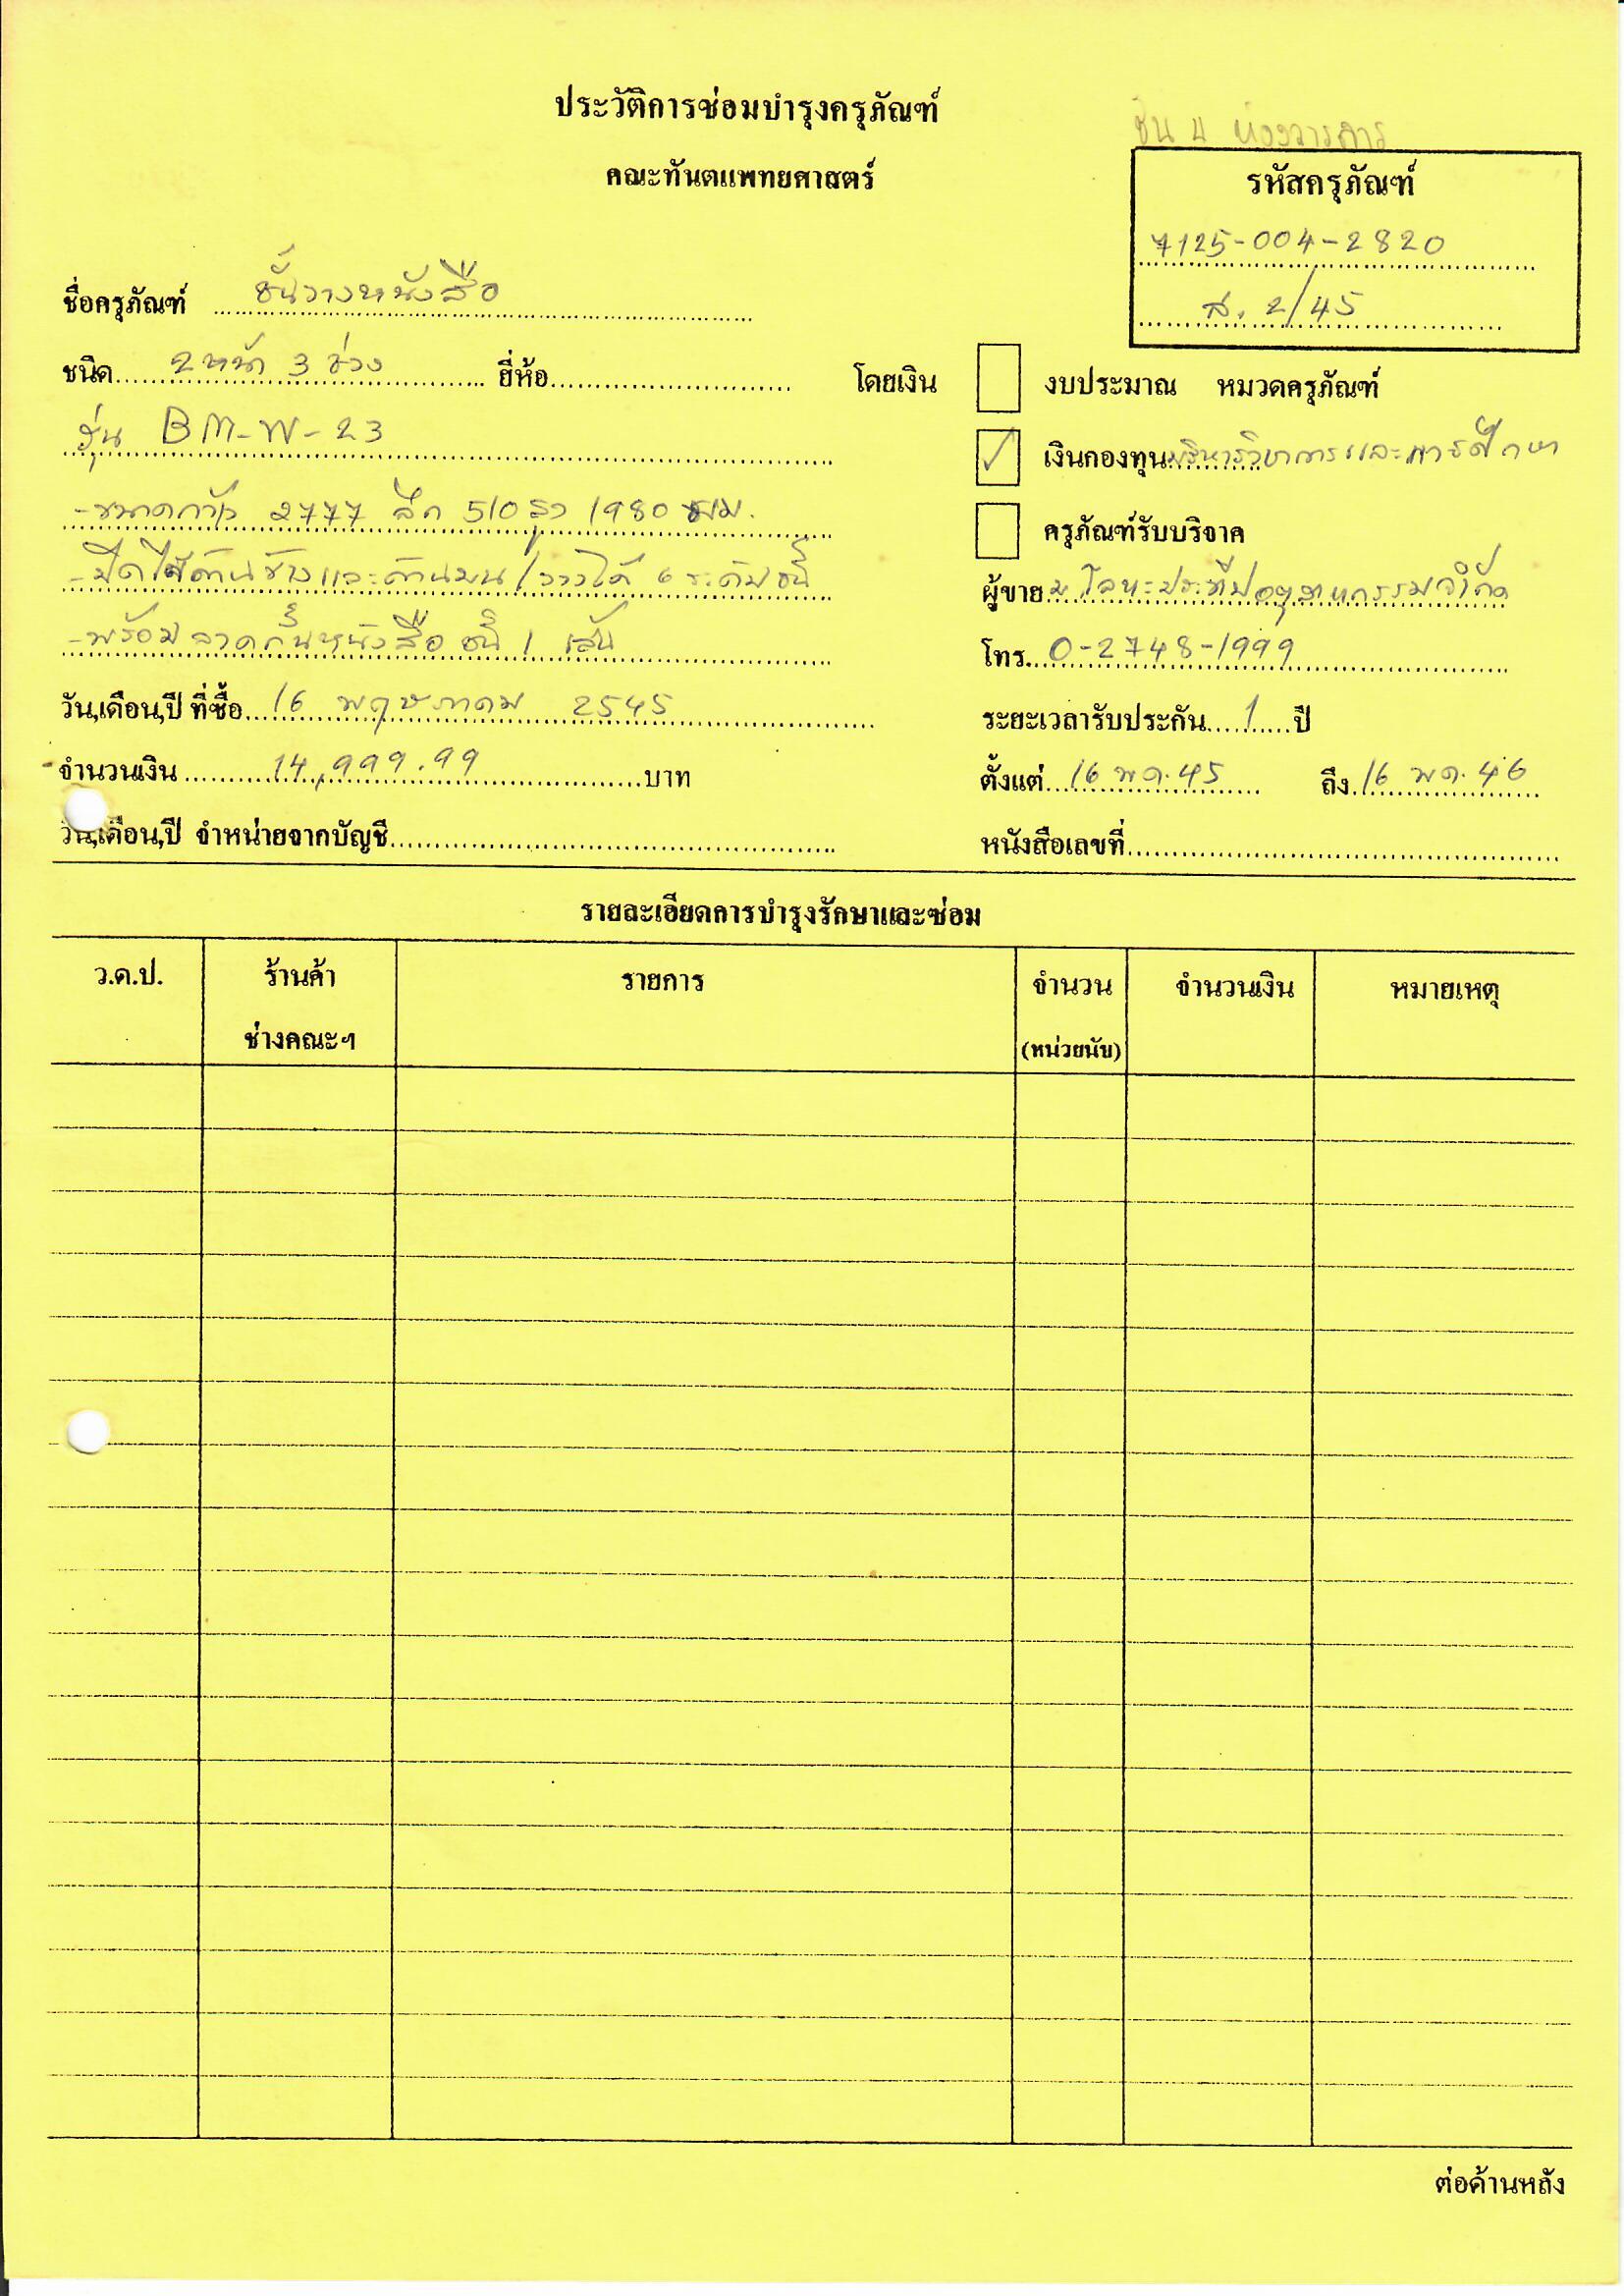 ประวัติการซ่อมบำรุงครุภัณฑ์
ชั้น 4 ห้องวารสาร
คณะทันตแพทยศาสตร์
รหัสครุภัณฑ์
7125-004-2820
ส. 2/45
ชื่อครุภัณฑ์ ชั้นวางหนังสือ
ชนิด 2 หน้า 3 ช่วง ยี่ห้อ
โดยเงิน งบประมาณ หมวดครุภัณฑ์
รุ่น BM-W-23
✓ เงินกองทุนบริหารวิชาการและการศึกษา
-ขนาดกว้าง 2777 ลึก 510 สูง 1980 มม.
ครุภัณฑ์รับบริจาค
-ปิดไม้ด้านข้างและด้านบน/วางได้ 6 ระดับชั้น
ผู้ขาย บ.โลหะประทีปอุตสาหกรรมจำกัด
-พร้อมลวดกั้นหนังสือ ชั้น 1 เส้น
โทร. 0-2748-1999
วัน,เดือน,ปี ที่ซื้อ 16 พฤษภาคม 2545
ระยะเวลารับประกัน 1 ปี
จำนวนเงิน 14,999.99 บาท
ตั้งแต่ 16 พค. 45 ถึง 16 พค. 46
วัน,เดือน,ปี จำหน่ายจากบัญชี
หนังสือเลขที่
รายละเอียดการบำรุงรักษาและซ่อม
ว.ด.ป. ร้านค้า รายการ จำนวน จำนวนเงิน หมายเหตุ
ช่างคณะฯ (หน่วยนับ)
ต่อด้านหลัง